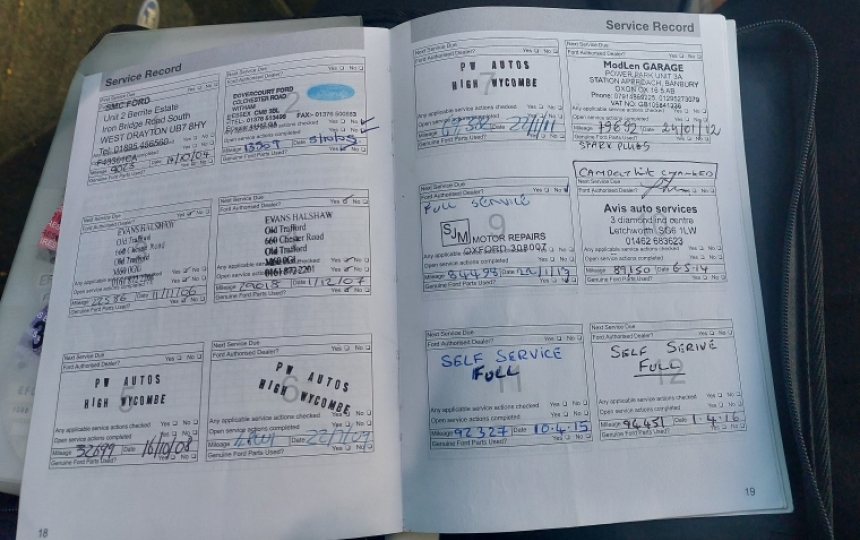 Service Record
Next Service Due
Ford Authorised Dealer?
SMC FORD
Unit 2 Bernte Estate
Iron Bridge Road South
WEST DRAYTON UB7 8HY
Tel: 01895 456560
Mileage 9023 Date
Genuine Ford Parts Used?
Next Service Due
Ford Authorised Dealer? Yes No
DOVERCOURT FORD
COLCHESTER ROAD
WITHAM
ESSEX CM8 3BL
Open service actions completed
Mileage 13307 Date 5/10/05
Genuine Ford Parts Used?
EVANS HALSHAW
Old Trafford
660 Chester Road
Old Trafford
M16 0GJ
Mileage 22586 Date 11/11/06
Genuine Ford Parts Used?
Next Service Due
Ford Authorised Dealer? Yes No
EVANS HALSHAW
Old Trafford
660 Chester Road
Old Trafford
0161 872 2201
Open service actions completed
Mileage 29018 Date 1/12/07
Genuine Ford Parts Used? Yes No
Next Service Due
Ford Authorised Dealer? Yes No
PW AUTOS
HIGH WYCOMBE
5
Any applicable service actions checked Yes No
Open service actions completed Yes No
Mileage 32699 Date 16/10/08
Genuine Ford Parts Used? Yes No
Next Service Due
Ford Authorised Dealer? Yes No
PW AUTOS
HIGH WYCOMBE
6
Any applicable service actions checked
Open service actions completed Yes No
Mileage Date
Genuine Ford Parts Used? Yes No
18
Service Record
Next Service Due
Ford Authorised Dealer? Yes No
PW AUTOS
7
HIGH WYCOMBE
Any applicable service actions checked Yes No
Open service actions completed Yes No
Mileage Date
Genuine Ford Parts Used? Yes No
Next Service Due
Ford Authorised Dealer? Yes No
ModLen GARAGE
POWER PARK UNIT 3A
STATION APPROACH, BANBURY
OXON OX16 5AB
VAT NO: GB105841336
Any applicable service actions checked
Open service actions completed
Mileage Date 24/01/12
Genuine Ford Parts Used? Yes No
SPARK PLUGS
Next Service Due
Ford Authorised Dealer? Yes No
FULL SERVICE
9
SJM MOTOR REPAIRS
OXFORD 308007
Any applicable service actions checked
Open service actions completed
Mileage 84498 Date
Genuine Ford Parts Used? Yes No
CAMBELT KIT CHANGED
Next Service Due
Ford Authorised Dealer?
Avis auto services
3 diamond ind centre
Letchworth SG6 1LW
01462 683623
Any applicable service actions checked
Open service actions completed Yes No
Mileage 89150 Date 6-5-14
Genuine Ford Parts Used? Yes No
Next Service Due
Ford Authorised Dealer? Yes No
SELF SERVICE
FULL
11
Any applicable service actions checked Yes No
Open service actions completed Yes No
Mileage 92327 Date 10·4·15
Genuine Ford Parts Used? Yes No
Next Service Due
Ford Authorised Dealer? Yes No
SELF SERIVE
FULL
12
Any applicable service actions checked Yes No
Open service actions completed Yes No
Mileage 94451 Date 1·4·16
Genuine Ford Parts Used? Yes No
19